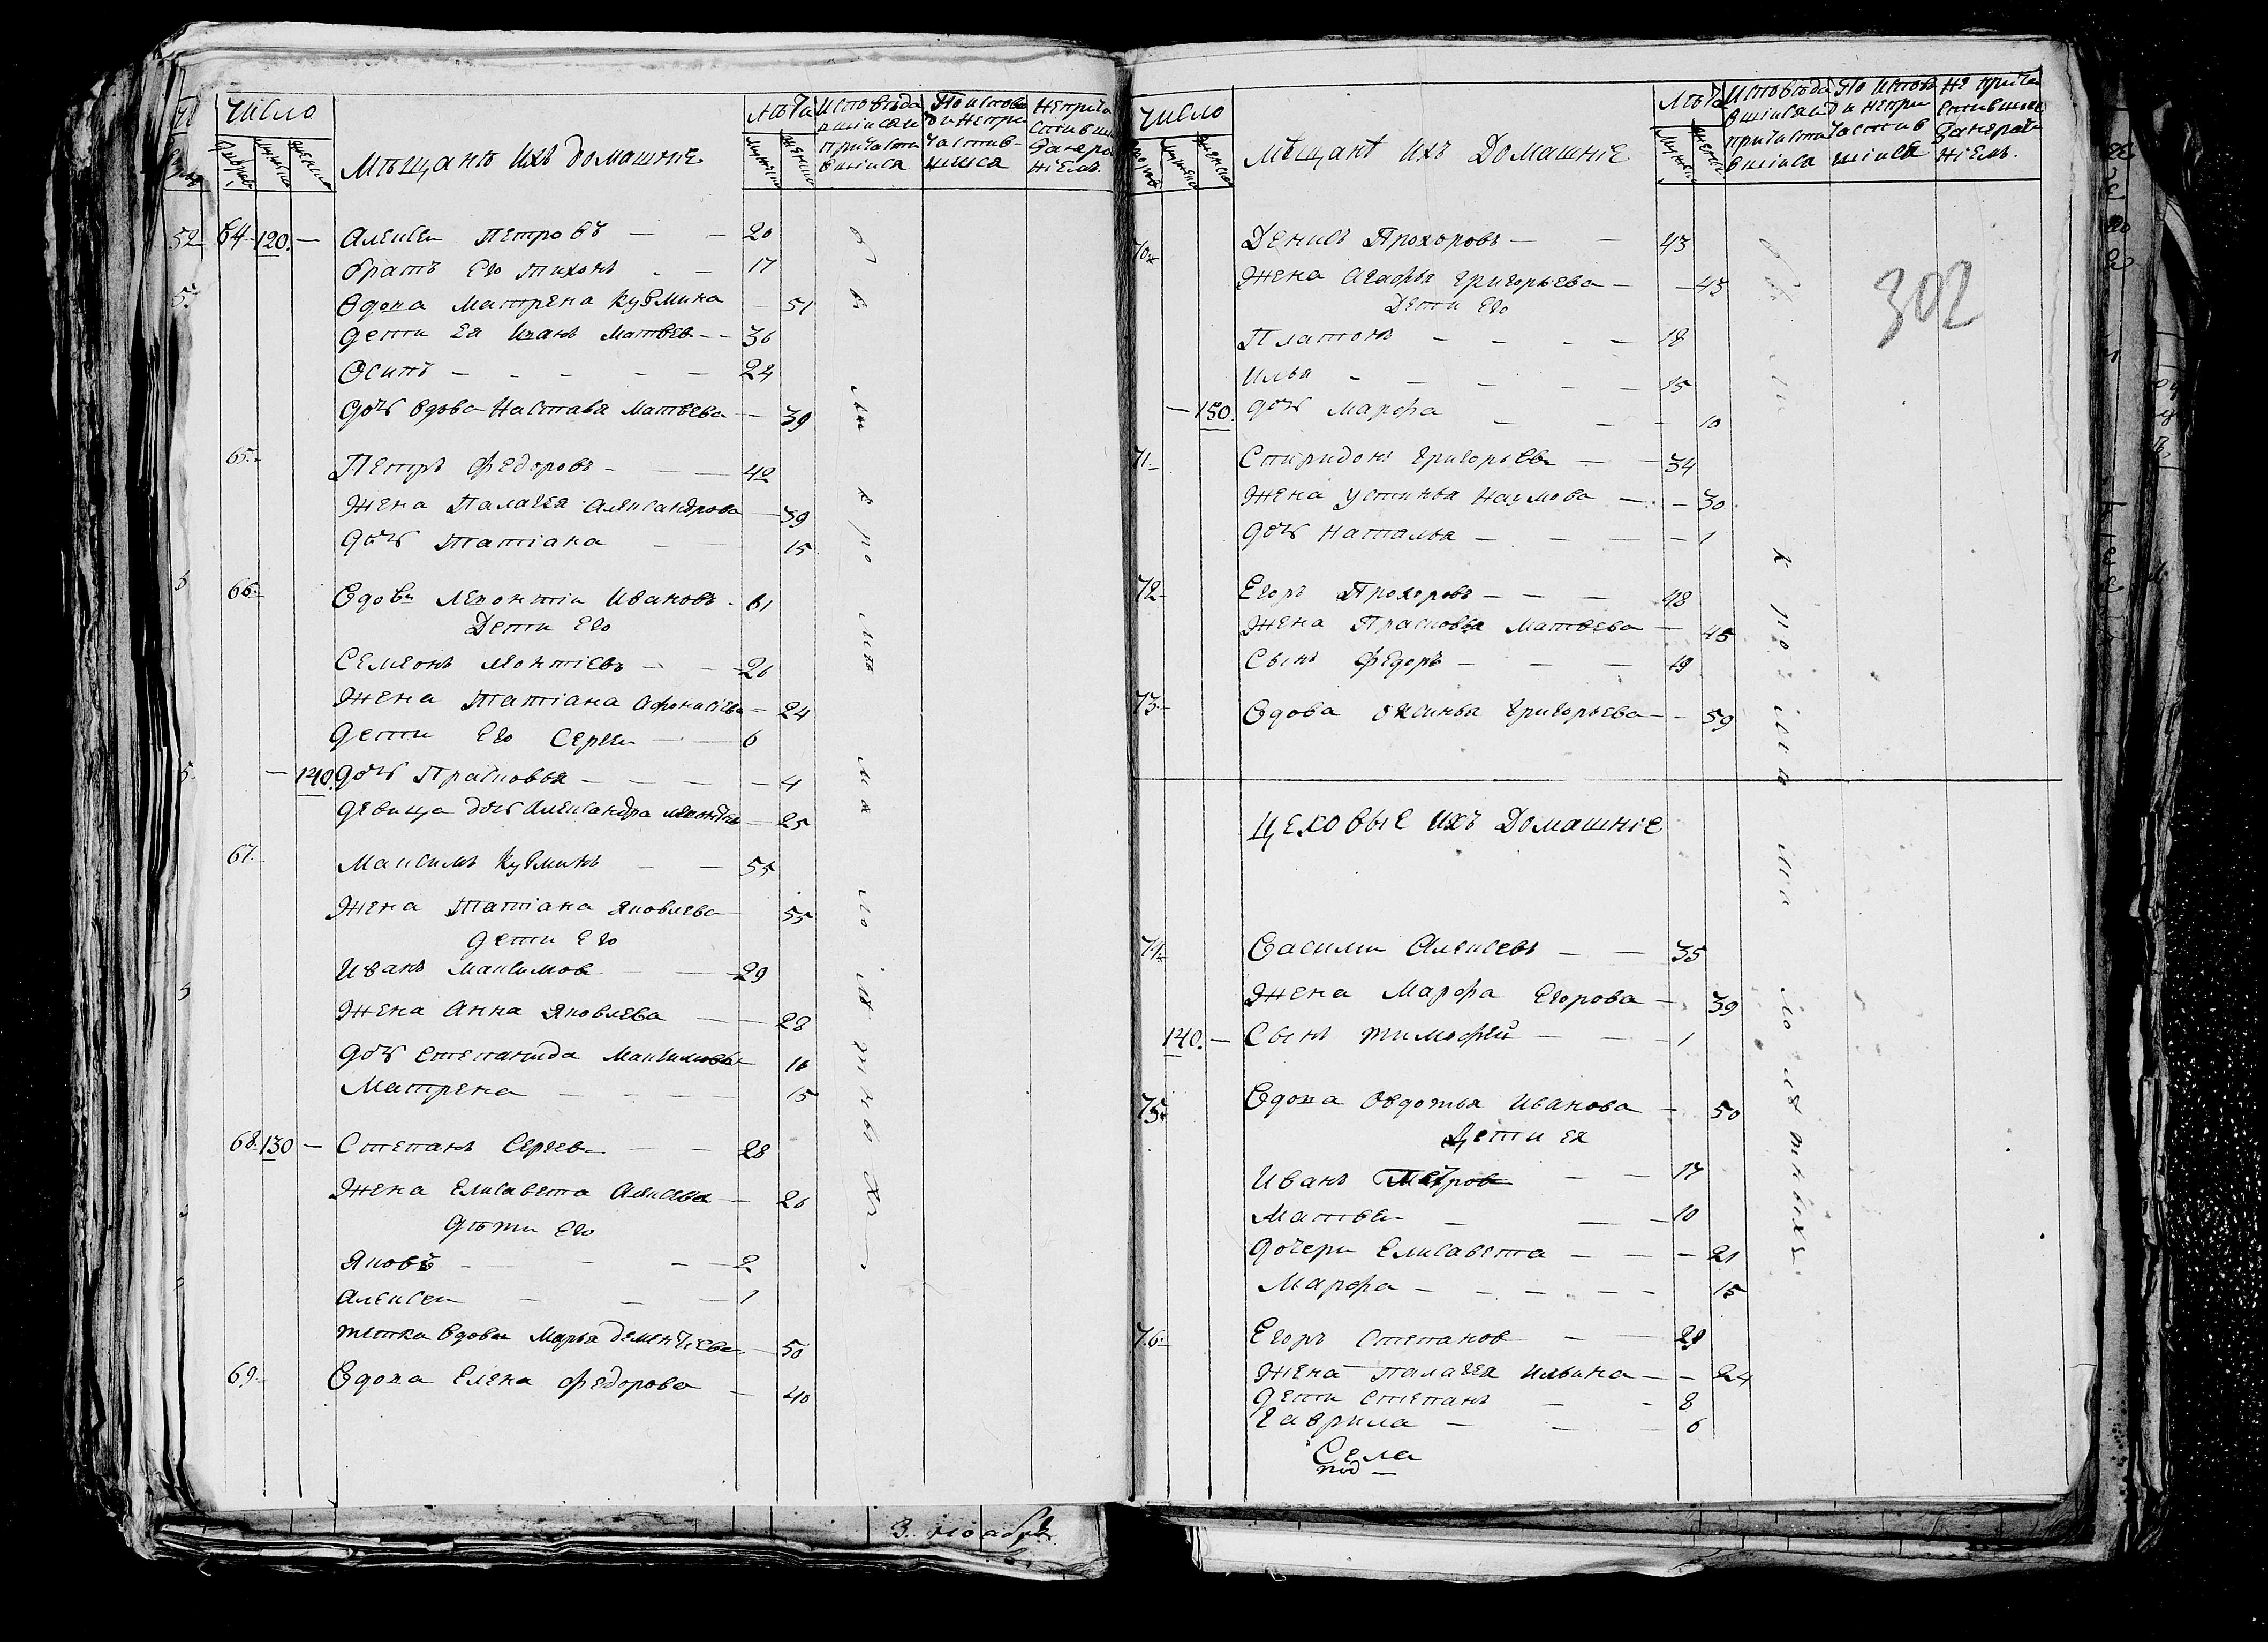 Число
Мѣщанѣ ихъ домашніе
Лѣта
Исповѣда
вшіися и
причасти
вшіися
По испов
ди непри
частив
шиса
Неприча
стивш
Занера
ніемъ.
64. 120. — Алексеи Петровъ — — 20
братъ Его Тихонъ — 17
Вдова Матрена Кузмина — 51
Дети Ея Иванъ Матвев — — 36
Осипъ — — — — 24
Дочь вдова Наставя Матвева — 39
65. Петръ Федоровъ — — 42
Жена Палагея Александрова — 39
Дочь Татіана — — 15
66. Вдовъ Леонтіи Ивановъ. 61
Дети Его
Семионъ Леонтіевъ — — 26
Жена Татіана Афонасіева — 24
Дети Его Сергеи — — 6
— 140. Дочь Прасковья — — — 4
Девица дочь Александра Леонтіева — 25
67. Максимъ Кузминъ — — 55
Жена Татіана Яковлева — 55
Дети Его
Иванъ Максимов — — 29
Жена Анна Яковлева — — 28
Дочь Степанида Максимова — 16
Матрена — — — — 15
68. 130 — Степанъ Сергев — — 28
Жена Елисавета Алексева — 26
Дѣти Его
Яковъ — — — 2
Алексеи — — — 1
Тетка вдова Марья Дементьева — 50
69. Вдова Елена Федорова — 40
З. ноабрѣ
Число
Мѣщанѣ ихъ Домашніе
Лѣта
Исповѣда
вшіися и
причасти
вшіися
По испов
ди непри
частив
шіися
Не прича
стившие
Занераче
ніемъ.
302
70. Денисъ Прохоровъ — — 43
Жена Агафья Григорьева — — 43
Дети Его
Платонъ — — — — 18
Илья — — — — — 15
— 150. Дочь Марфа — — — 10
71. Спиридонъ Григорьевъ — — 34
Жена Устинья Наумова — — 30
Дочь Наталья — — — — 1
72. Егоръ Прохоровъ — — — 48
Жена Прасковья Матвева — 45
Сынъ Федоръ — — — 19
73. Вдова Оксинья Григорьева — — 59
Цеховые ихъ Домашніе
74. Василии Алексевъ — — 35
Жена Марфа Егорова — 39
140. — Сынъ Тимофей — — — 1
75. Вдова Овдотья Иванова — 50
Дети ея
Иванъ Петров — — 17
Матвеи — — — 10
Дочери Елисавета — — — 21
Марфа — — — — — — 15
76. Егоръ Степанов — — 29
Жена Палагея Ильина — — 24
Дети Степанъ — — 8
Гаврила — — 6
Села
под —